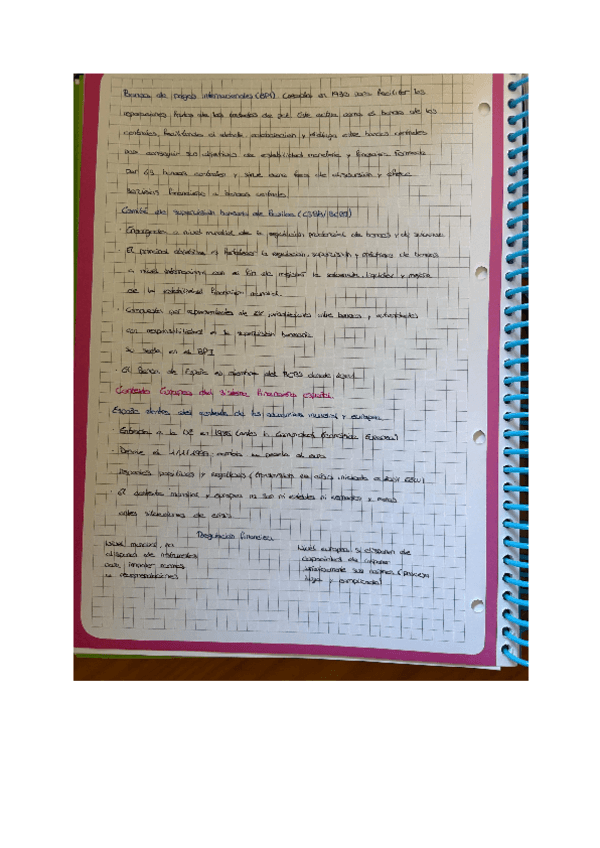 Banco de pagos internacionales (BPI). Creado en 1930 para facilitar las
reparaciones fruto de los tratados de paz. Este actúa como el banco de los
centrales, facilitando el debate, colaboración y diálogo entre bancos centrales
para conseguir sus objetivos de estabilidad monetaria y financiera. Formado
por 63 bancos centrales y sirve como foro de discusión y ofrece
servicios financieros a bancos centrales.
Comité de supervisión bancaria de Basilea (CSBB/BCBS)
· a nivel mundial de la regulación prudencial de bancos y de
· El principal objetivo es fortalecer la regulación, supervisión y prácticas de bancos
a nivel internacional con el fin de mejorar la solvencia, liquidez y
de la estabilidad financiera mundial.
· Compuesto por representantes de 28 jurisdicciones entre bancos y autoridades
con responsabilidad en la supervisión bancaria
· Su sede en el BPI
· El Banco de España es miembro del BCBS desde 2001
Contexto Europeo del sistema financiero español
España dentro del contexto de las mundial y europea
· Entrada a la UE en 1986 (antes la Comunidad Económica Europea)
· Desde el 1/1/1999 cambia la peseta al euro
· Impactos positivos y negativos (
· El contexto mundial y europeo no son ni estables ni y menos
antes situaciones de crisis
Regulación financiera
Nivel mundial, no
disponen de instrumentos
para imponer normas
o recomendaciones
Nivel europeo si disponen de
capacidad de imponer
sus normas (proceso
largo y complicado)